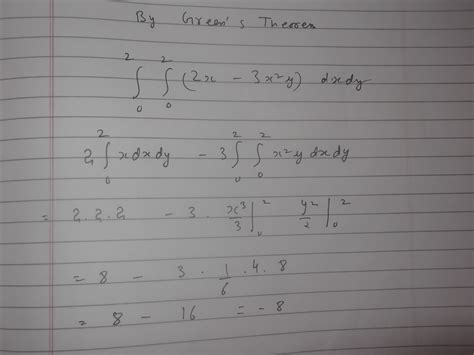 By Green's Theorem
∫₀² ∫₀² (2x - 3x²y) dxdy
2 ∫₀² x dx dy - 3 ∫₀² ∫₀² x²y dx dy
= 2.2.2 - 3 . x³/3 |₀² y²/2 |₀²
= 8 - 3 . 1/6 . 4 . 8
= 8 - 16 = -8